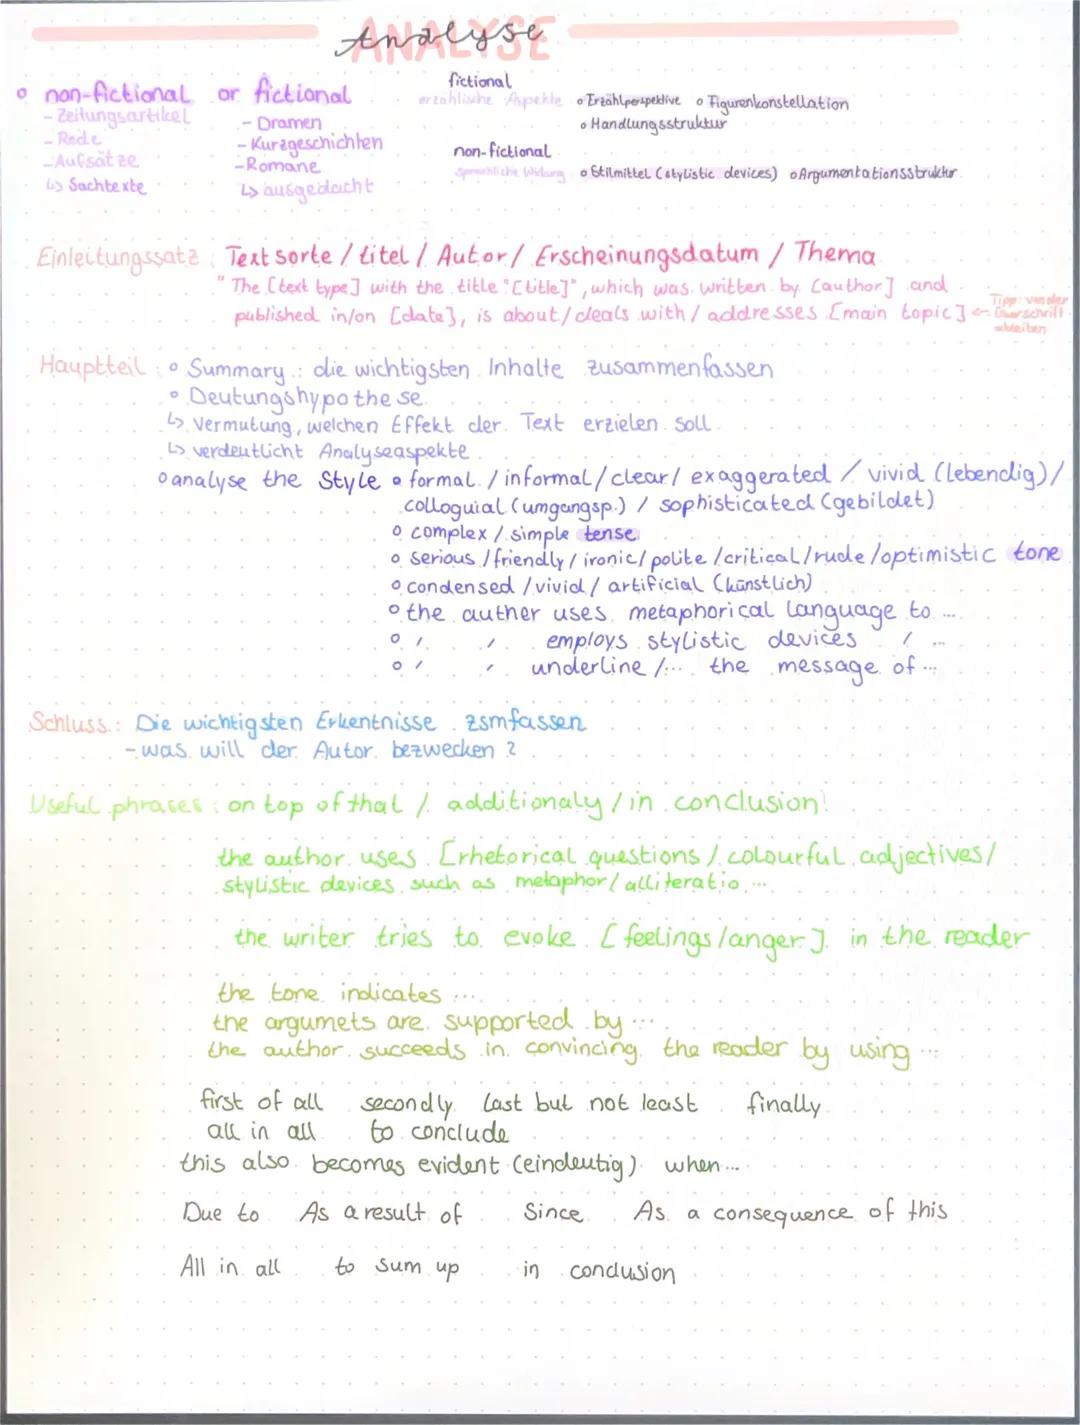 Analyse
ANALYSE
o non-fictional or fictional
- Zeitungsartikel
- Rede
- Aufsätze
↳ Sachtexte
- Dramen
- Kurzgeschichten
- Romane
↳ ausgedacht
fictional
erzählische Aspekte o Erzählperspektive o Figurenkonstellation
o Handlungsstruktur
non-fictional
sprachliche Wirkung o Stilmittel (stylistic devices) o Argumentationsstruktur
Einleitungssatz: Textsorte / titel / Autor / Erscheinungsdatum / Thema
"The [text type] with the title "[title]", which was written by [author] and
published in/on [date], is about/deals with/ addresses [main topic] ← Tipp: von der
Überschrift
ableiten
Hauptteil: o Summary: die wichtigsten Inhalte zusammenfassen
o Deutungshypothese
↳ Vermutung, welchen Effekt der Text erzielen soll
↳ verdeutlicht Analyseaspekte
o analyse the Style o formal / informal / clear / exaggerated / vivid (lebendig) /
colloguial (umgangsp.) / sophisticated (gebildet)
o complex / simple tense
o serious / friendly / ironic / polite / critical / rude / optimistic tone
o condensed / vivid / artificial (künstlich)
o the auther uses metaphorical language to ...
o ' ' employs stylistic devices ' ...
o ' ' underline /... the message of ...
Schluss: Die wichtigsten Erkentnisse zsmfassen
- was will der Autor bezwecken?
Useful phrases: on top of that / additionaly / in conclusion
the author uses [rhetorical questions / colourful adjectives /
stylistic devices such as metaphor / alliteratio ...
the writer tries to evoke [feelings/anger] in the reader
the tone indicates ...
the argumets are supported by ...
the author succeeds in convincing the reader by using ...
first of all secondly last but not least finally
all in all to conclude
this also becomes evident (eindeutig) when ...
Due to As a result of Since As a consequence of this
All in all to sum up in conclusion